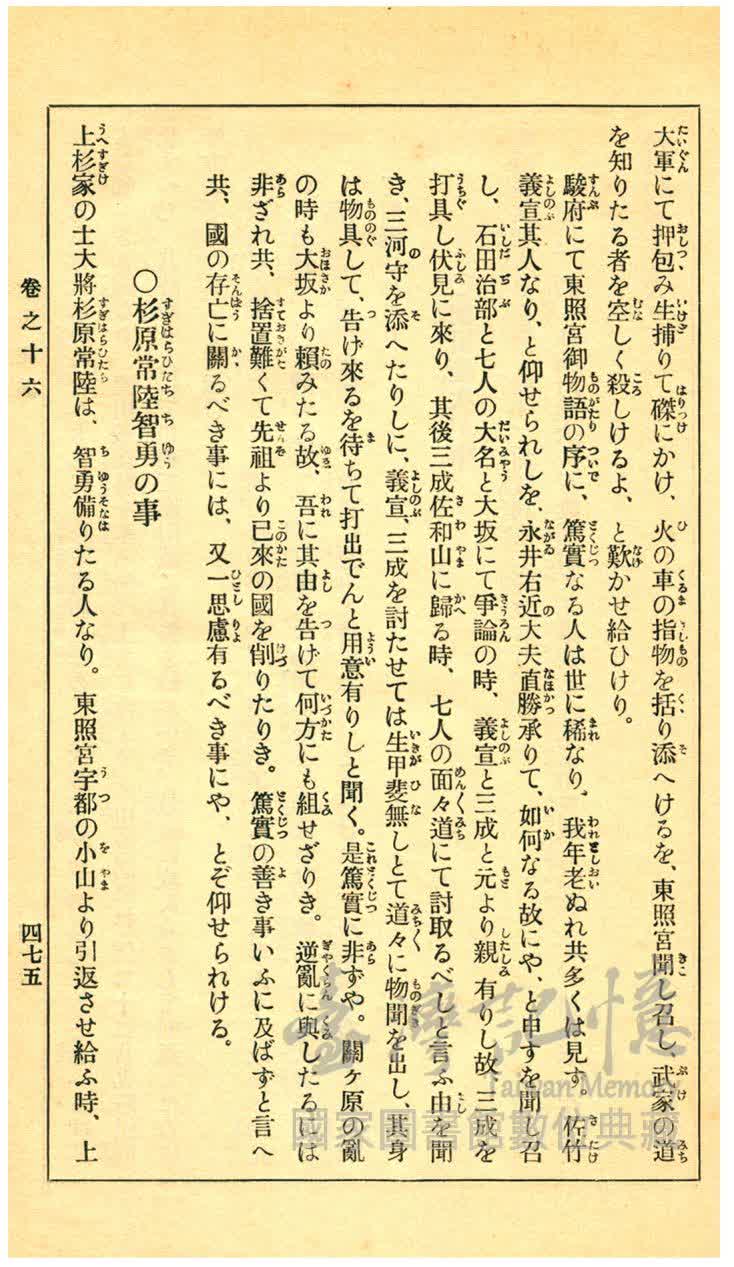 大軍にて押包み生捕りて磔にかけ、火の車の指物を括り添へけるを、東照宮聞し召し、武家の道
を知りたる者を空しく殺しけるよ、と歎かせ給ひけり。
駿府にて東照宮御物語の序に、篤實なる人は世に稀なり、我年老ぬれ共多くは見ず。佐竹
義宣其人なり、と仰せられしを、永井右近大夫直勝承りて、如何なる故にや、と申すを聞し召
し、石田治部と七人の大名と大坂にて爭論の時、義宣と三成と元より親有りし故、三成を
打具し伏見に來り、其後三成佐和山に歸る時、七人の面々道にて討取るべしと言ふ由を聞
き、三河守を添へたりしに、義宣、三成を討たせては生甲斐無しとて道々に物聞を出し、其身
は物具して、告げ來るを待ちて打出でんと用意有りしと聞く。是篤實に非ずや。關ヶ原の亂
の時も大坂より賴みたる故、吾に其由を告げて何方にも組せざりき。逆亂に與したるには
非ざれ共、捨置難くて先祖より已來の國を削りたりき。篤實の善き事いふに及ばずと言へ
共、國の存亡に關るべき事には、又一思慮有るべき事にや、とぞ仰せられける。
〇杉原常陸智勇の事
上杉家の士大將杉原常陸は、智勇備りたる人なり。東照宮宇都の小山より引返させ給ふ時、上
卷之十六
四七五
臺灣記憶
Taiwan Memory
國家圖書館數位典藏